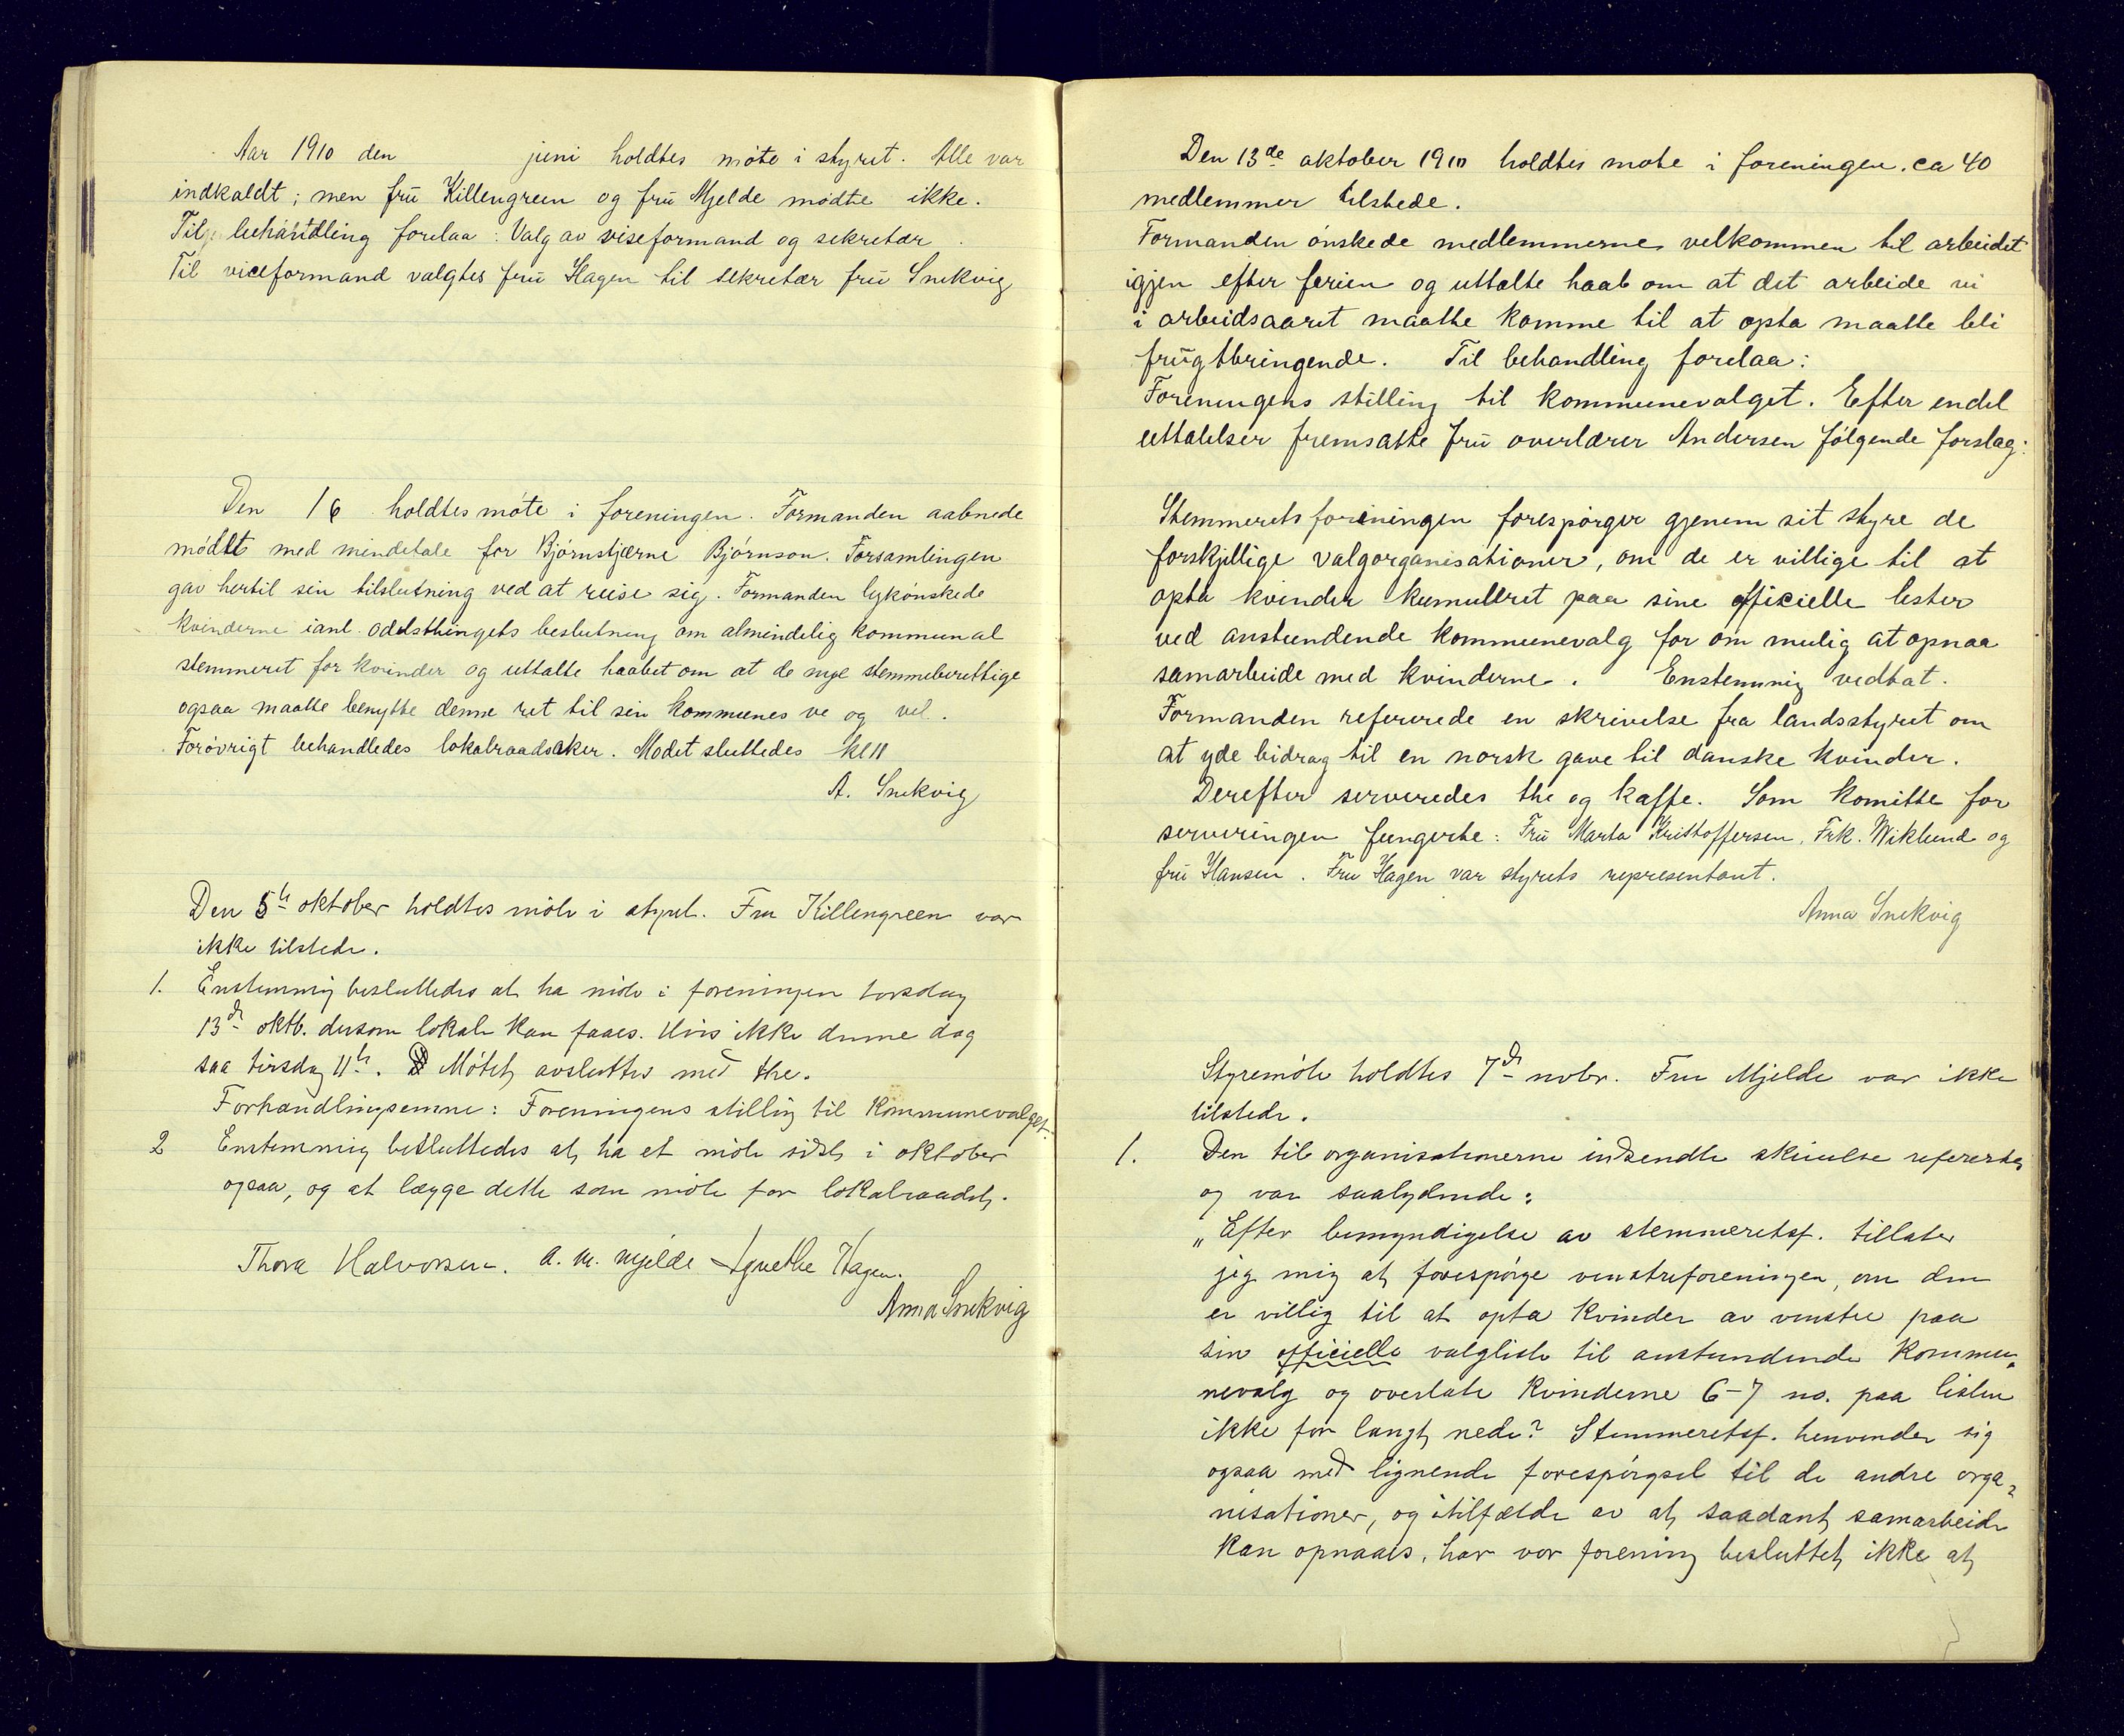 Aar 1910 den juni holdtes møte i styret. Alle var
indkaldt; men fru Killengreen og fru Mjelde mødte ikke.
Til behandling forelaa: Valg av viseformand og sekretær.
Til viceformand valgtes fru Hagen til sekretær fru Snekvig
Den 16 holdtes møte i foreningen. Formanden aabnede
mødet med mindetale for Bjørnstjerne Bjørnson. Forsamlingen
gav hertil sin tilslutning ved at reise sig. Formanden lykønskede
kvinderne ianl. odelsthingets beslutning om almindelig kommunal
stemmeret for kvinder og uttalte haabet om at de nye stemmeberettige
ogsaa maatte benytte denne ret til sin kommunes ve og vel.
Forøvrigt behandledes lokalraadsaker. Mødet sluttedes kl 11
A. Snekvig
Den 5te oktober holdtes møte i styret. Fru Killengreen var
ikke tilstede.
1. Enstemmig besluttedes at ha møte i foreningen torsdag
13de oktb. dersom lokale kan faaes. Hvis ikke denne dag
saa tirsdag 11te. Møtet avsluttes med the.
Forhandlingsemne: Foreningens stilling til kommunevalget.
2 Enstemmig besluttedes at ha et møte sidst i oktober
ogsaa, og at lægge dette som møte for lokalraadet.
Thora Halvorsen. A. M. Mjelde Agnethe Hagen.
Anna Snekvig
Den 13de oktober 1910 holdtes møte i foreningen. ca 40
medlemmer tilstede.
Formanden ønskede medlemmerne velkommen til arbeidet
igjen efter ferien og uttalte haab om at det arbeide vi
i arbeidsaaret maatte komme til at opta maatte bli
frugtbringende. Til behandling forelaa:
Foreningens stilling til kommunevalget. Efter endel
uttalelser fremsatte fru overlærer Andersen følgende forslag:
Stemmeretsforeningen forespørger gjenem sit styre de
forskjellige valgorganisationer, om de er villige til at
opta kvinder kumulleret paa sine officielle lister
ved anstundende kommunevalg for om mulig at opnaa
samarbeide med kvinderne. Enstemmig vedtat.
Formanden refererede en skrivelse fra landsstyret om
at yde bidrag til en norsk gave til danske kvinder.
Derefter serveredes the og kaffe. Som komitte for
serveringen fungerte: Fru Marta Kristoffersen, Frk. Wiklund og
fru Hansen. Fru Hagen var styrets representant.
Anna Snekvig
Styremøte holdtes 7de novbr. Fru Mjelde var ikke
tilstede.
1. Den til organisationerne indsendte skrivelse referertes
og var saalydende:
„Efter bemyndigelse av stemmeretsf. tillater
jeg mig at forespørge venstreforeningen, om den
er villig til at opta kvinder av venstre paa
sin officielle valgliste til anstundende kommu„
nevalg og overlate kvinderne 6-7 no. paa listen
ikke for langt nede? Stemmeretsf. henvender sig
ogsaa med lignende forespørgsel til de andre orga„
nisationer, og i tilfælde av at saadant samarbeide
kan opnaaes, har vor forening besluttet ikke at